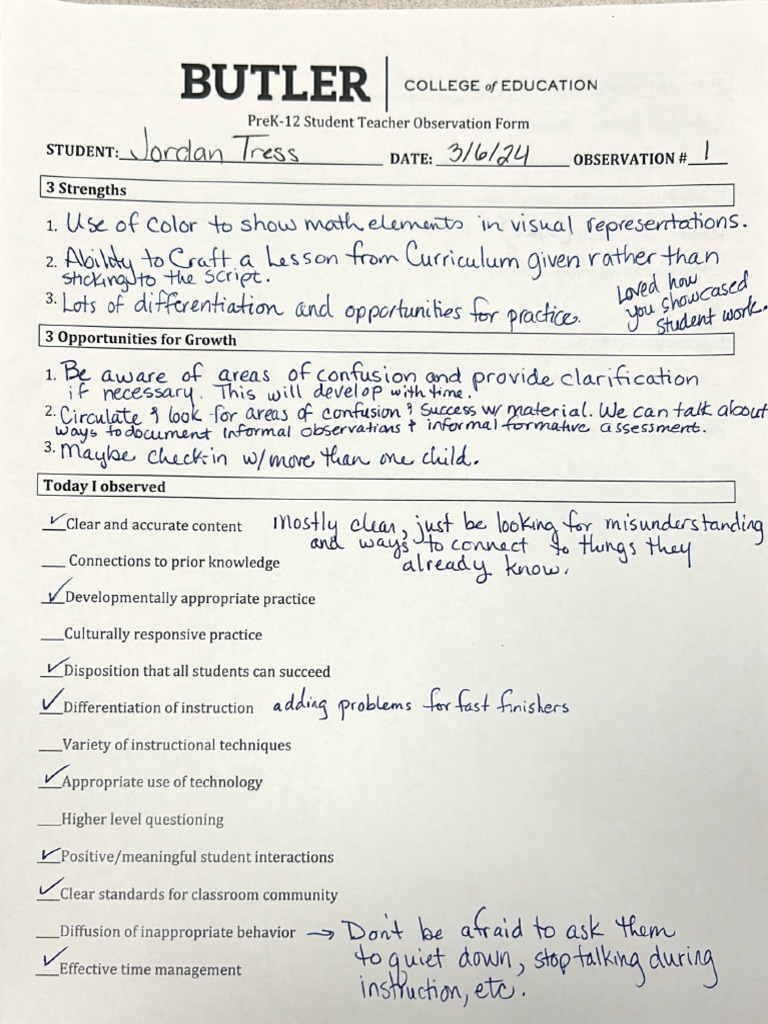 BUTLER | COLLEGE of EDUCATION
PreK-12 Student Teacher Observation Form
STUDENT: Jordan Tress DATE: 3/6/24 OBSERVATION # 1
3 Strengths
1. Use of color to show math elements in visual representations.
2. Ability to Craft a Lesson from Curriculum given rather than
sticking to the script.
3. Lots of differentiation and opportunities for practice.
Loved how
you showcased
student work.
3 Opportunities for Growth
1. Be aware of areas of confusion and provide clarification
if necessary. This will develop with time.
2. Circulate & look for areas of confusion & success w/ material. We can talk about
ways to document informal observations + informal formative assessment.
3. Maybe check-in w/ more than one child.
Today I observed
✓ Clear and accurate content Mostly clear, just be looking for misunderstanding
and ways to connect to things they
already know.
__ Connections to prior knowledge
✓ Developmentally appropriate practice
__ Culturally responsive practice
✓ Disposition that all students can succeed
✓ Differentiation of instruction adding problems for fast finishers
__ Variety of instructional techniques
✓ Appropriate use of technology
__ Higher level questioning
✓ Positive/meaningful student interactions
✓ Clear standards for classroom community
__ Diffusion of inappropriate behavior → Don't be afraid to ask them
to quiet down, stop talking during
instruction, etc.
✓ Effective time management